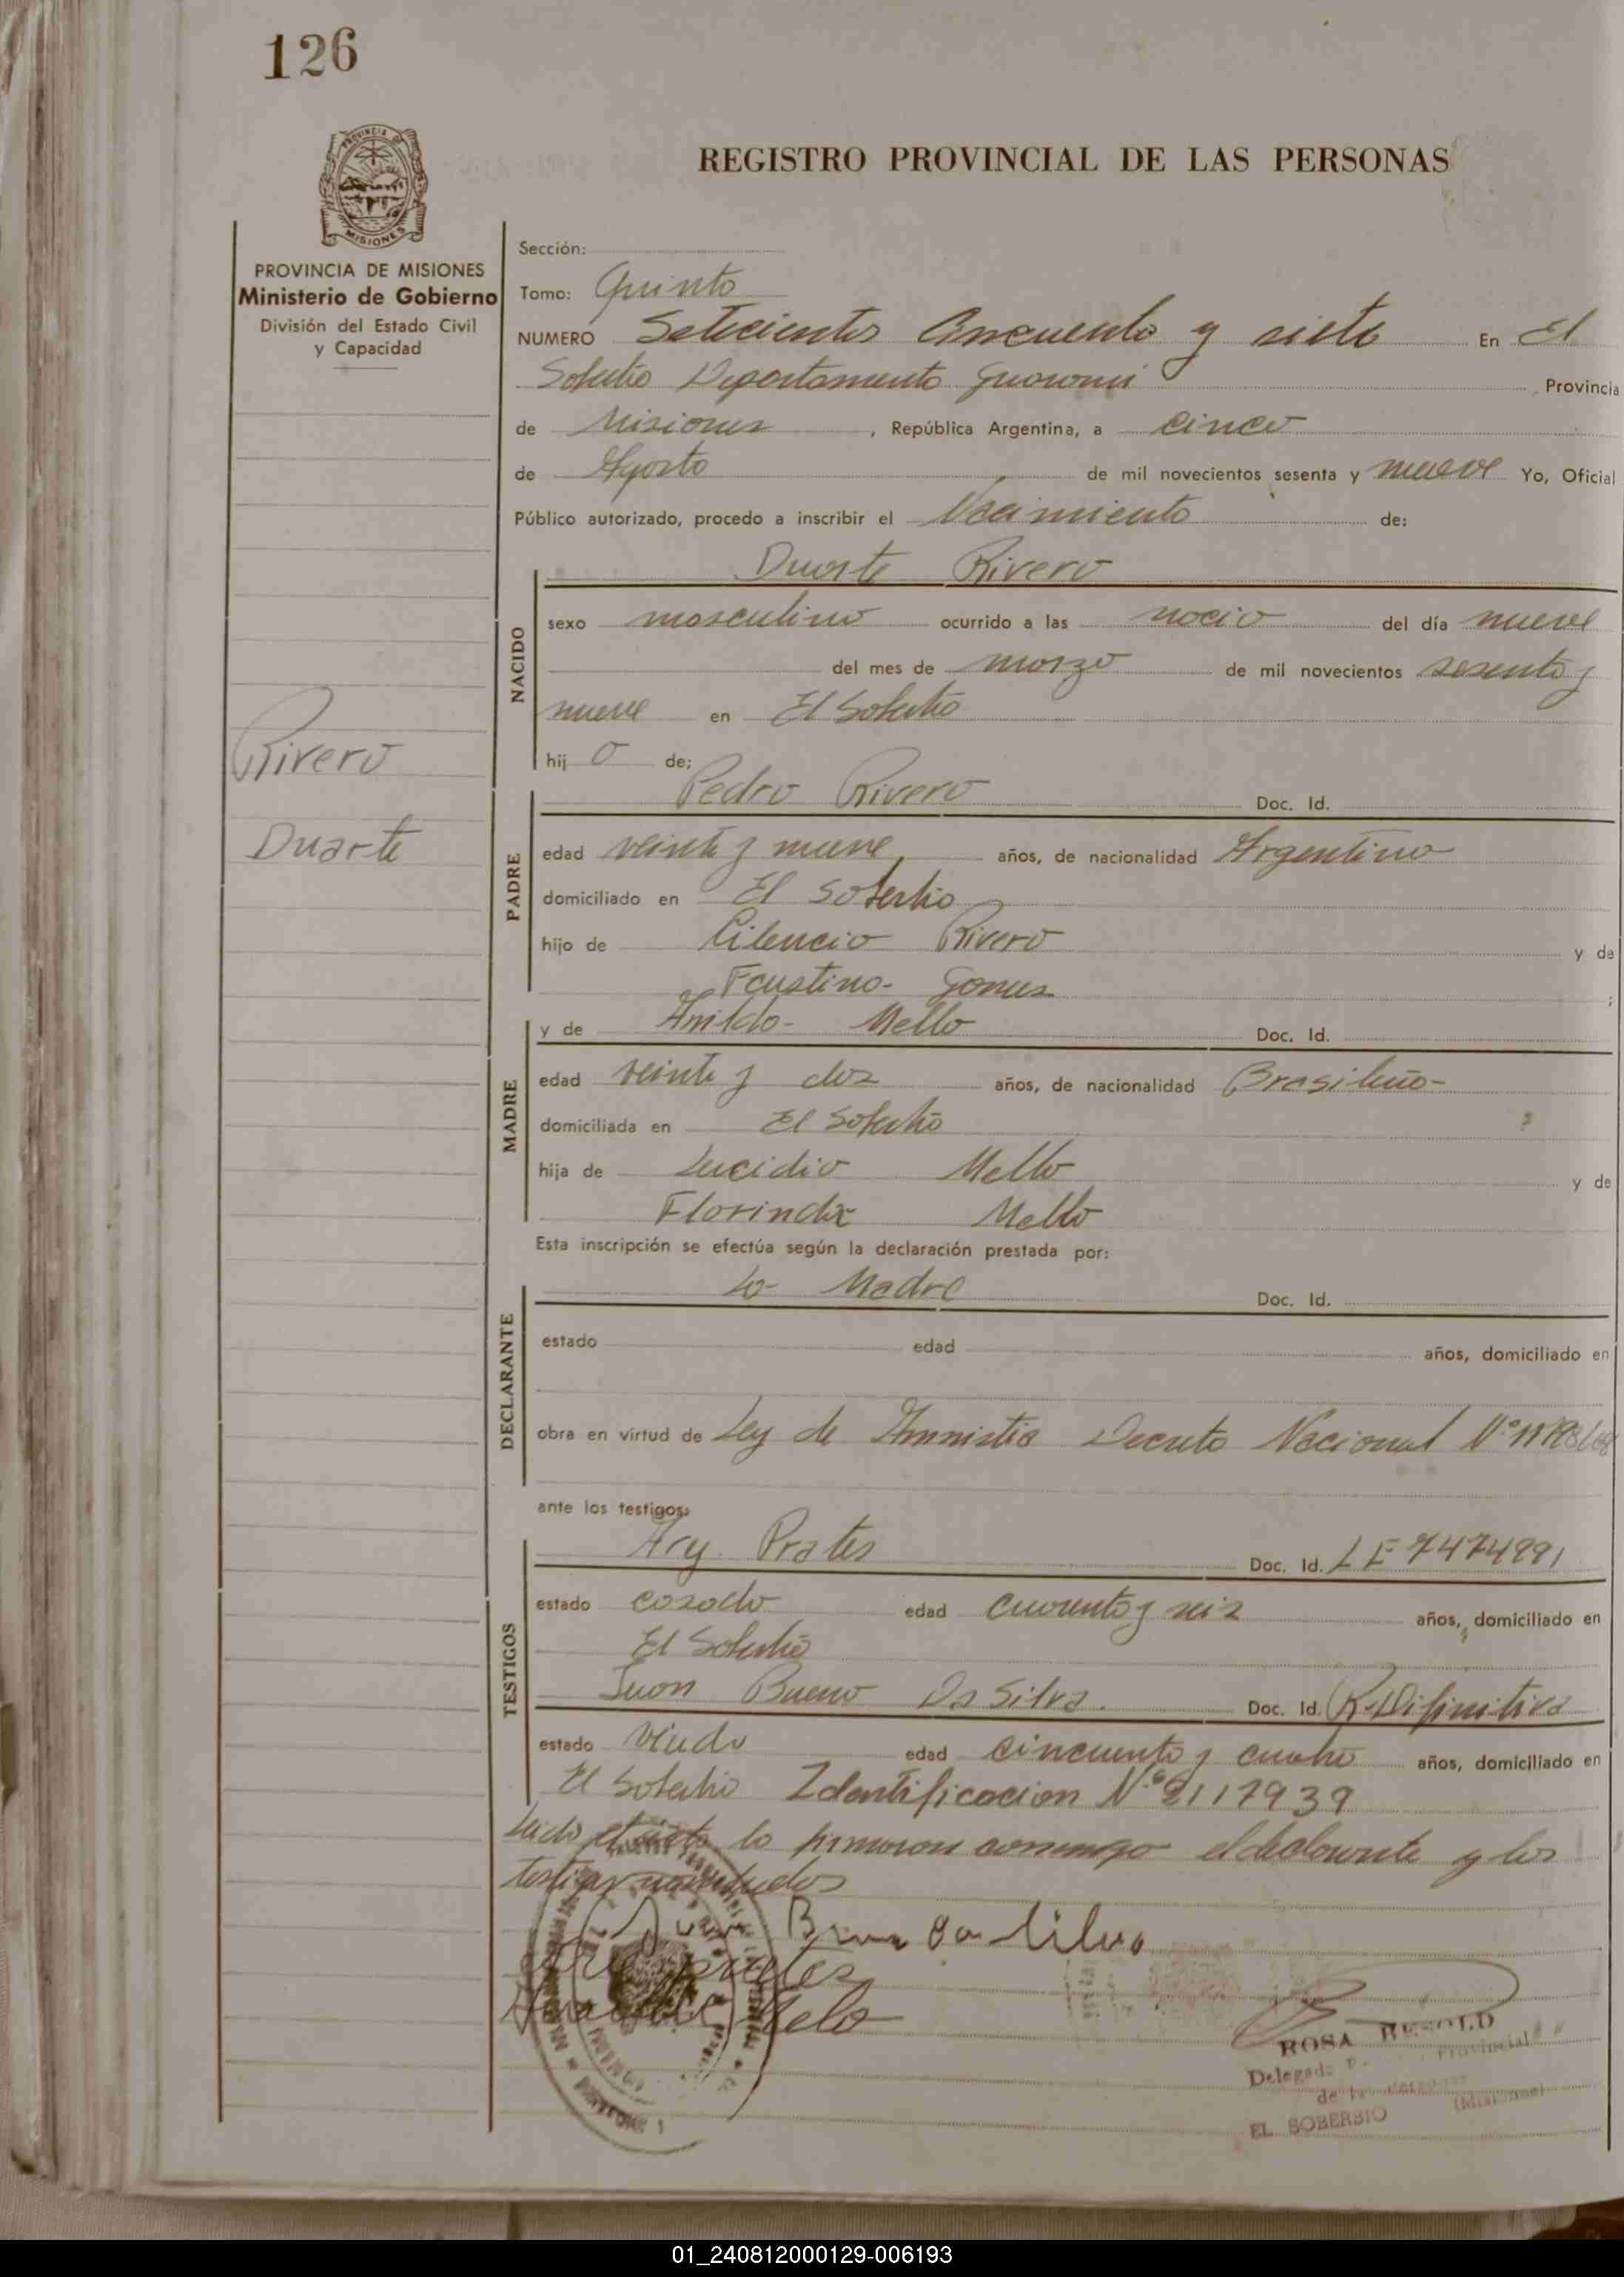 126
PROVINCIA DE
MISIONES
PROVINCIA DE MISIONES
Ministerio de Gobierno
División del Estado Civil
y Capacidad
Rivero
Duarte
REGISTRO PROVINCIAL DE LAS PERSONAS
Sección:
Tomo: Quinto
NUMERO Setecientos Cincuenta y siete En El
Soberbio Departamento Guarani Provincia
de Misiones, República Argentina, a cinco
de Agosto de mil novecientos sesenta y nueve Yo, Oficial
Público autorizado, procedo a inscribir el Nacimiento de:
Duarte Rivero
NACIDO
sexo masculino ocurrido a las nacio del día nueve
del mes de marzo de mil novecientos sesenta y
nueve en El Soberbio
hij o de:
Pedro Rivero Doc. Id.
PADRE
edad veinte y nueve años, de nacionalidad Argentino
domiciliado en El Soberbio
hijo de Rivero y de
Faustina Gomes ;
y de Mello Doc. Id.
MADRE
edad veinte y dos años, de nacionalidad Brasileña
domiciliada en El Soberbio
hija de Lucidio Mello y de
Florinda Mello
Esta inscripción se efectúa según la declaración prestada por:
La Madre Doc. Id.
DECLARANTE
estado edad años, domiciliado en
obra en virtud de Ley de Amnistia Decreto Nacional Nº
ante los testigos:
Ary Prates Doc. Id. L E 7474891
TESTIGOS
estado casado edad cuarenta y seis años, domiciliado en
El Soberbio
Juan Bueno Da Silva. Doc. Id. R. Difinitiva
estado viudo edad cincuenta y cuatro años, domiciliado en
El Soberbio Identificacion Nº 2117939
Leido el acta la firmaron conmigo el declarante y los
testigos
Juan Bueno da Silva
Ary prates
Melo
ROSA BESOLD
Delegada Provincial
de las Personas
EL SOBERBIO (Misiones)
01_240812000129-006193